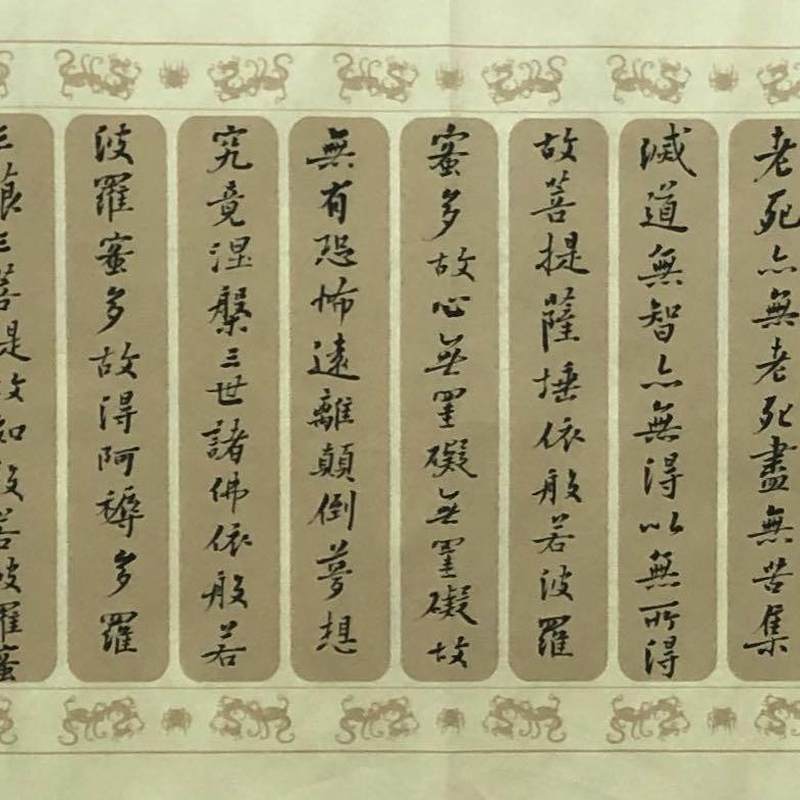 老死亦無老死盡無苦集
滅道無智亦無得以無所得
故菩提薩埵依般若波羅
蜜多故心無罣礙無罣礙故
無有恐怖遠離顛倒夢想
究竟涅槃三世諸佛依般若
波羅蜜多故得阿耨多羅
三藐三菩提故知般若波羅蜜